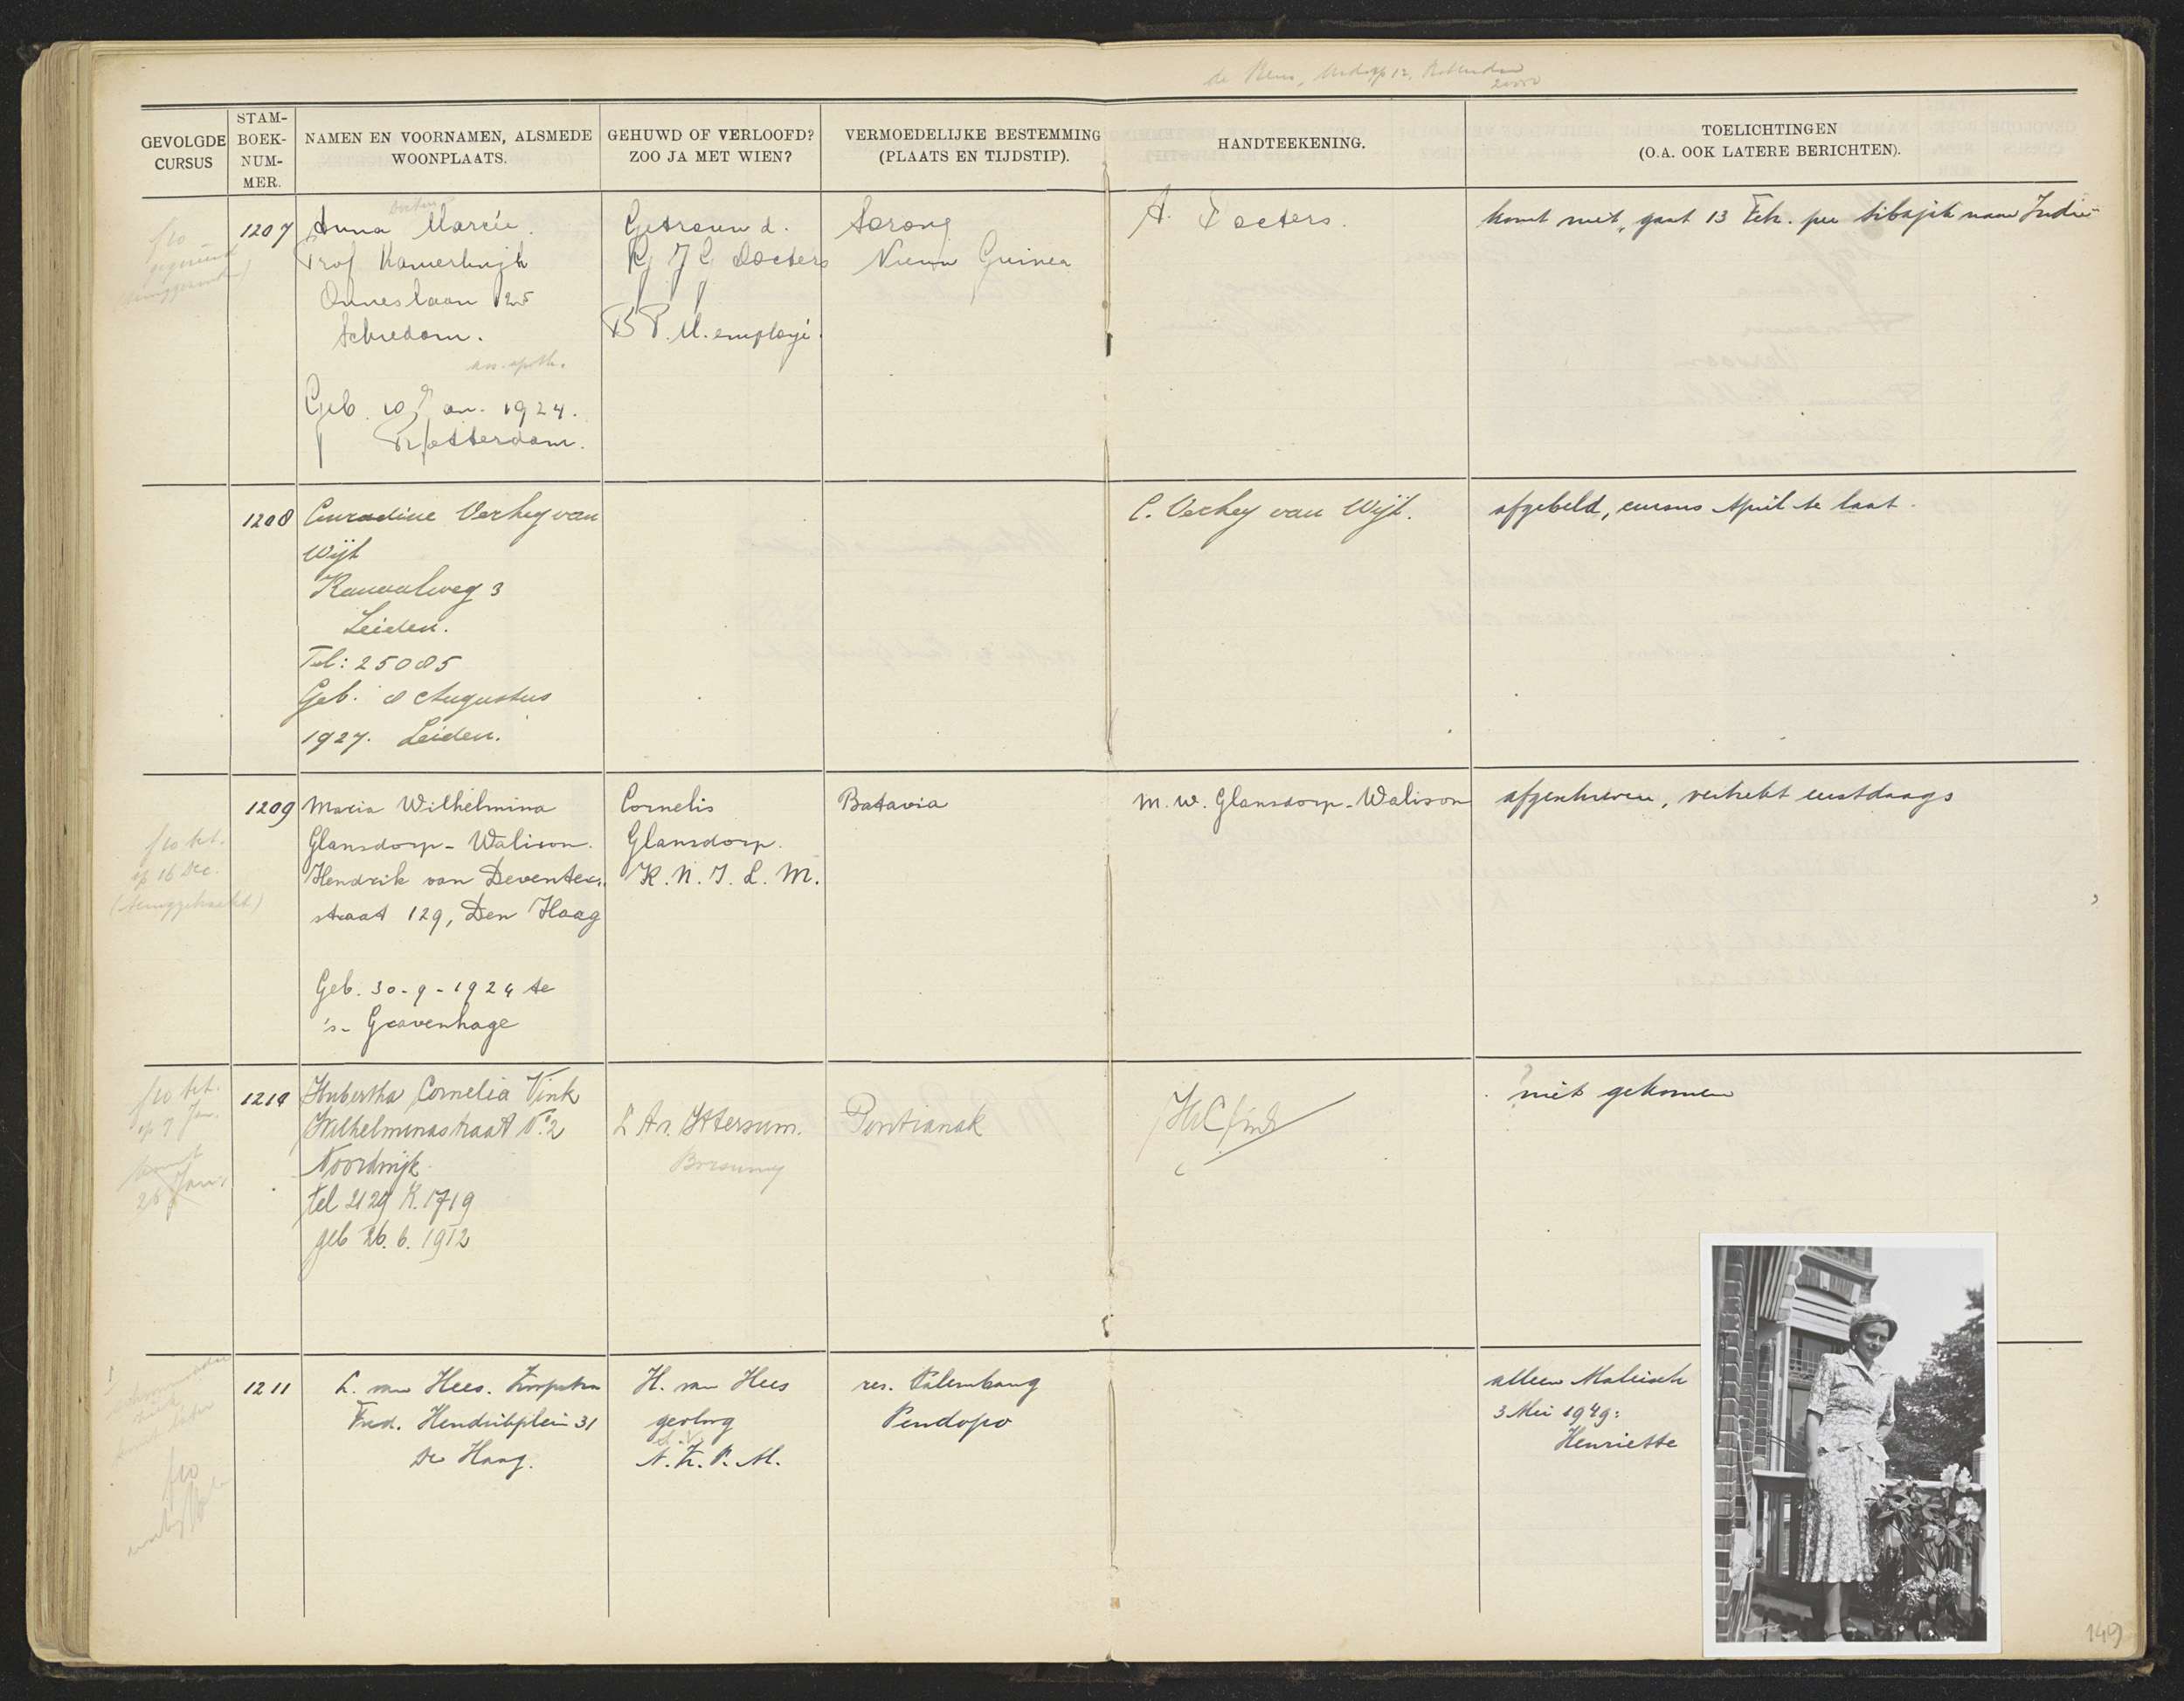 GEVOLGDE CURSUS
STAM-BOEK-NUM-MER.
NAMEN EN VOORNAMEN, ALSMEDE WOONPLAATS.
GEHUWD OF VERLOOFD? ZOO JA MET WIEN?
VERMOEDELIJKE BESTEMMING (PLAATS EN TIJDSTIP).
HANDTEEKENING.
TOELICHTINGEN
(O.A. OOK LATERE BERICHTEN).
f10
1207
Anna Marie
Prof Kamerlingh
Onneslaan 25
Schiedam.
ass. apoth.
Geb. 10 Jan. 1924.
Rotterdam.
Getrouwd.
Docters
B.P.M. employé.
Sorong
Nieuw Guinea
A. Docters.
komt niet, gaat 13 Feb. per Sibajak naar Indië
1208
Conradine Verhey van
Wijk
Kanaalweg 3
Leiden.
Tel: 25085
Geb. 8 Augustus
1927. Leiden.
C. Verhey van Wijk.
afgebeld, cursus April te laat.
f10 bet.
op 16 Dec.
1209
Maria Wilhelmina
Glansdorp-Walison.
Hendrik van Deventer-
straat 129, Den Haag
Geb. 30-9-1924 te
's-Gravenhage
Cornelis
Glansdorp.
K.N.I.L.M.
Batavia
M.W. Glansdorp-Walison
afgeschreven, vertrekt eerstdaags
f10 bet.
op 7 Jan.
komt
28 Jan.
1210
Hubertha Cornelia Vink
Wilhelminastraat No. 2
Noordwijk
tel 2129 K. 1719
geb 26. 6. 1912
Ittersum.
Pontianak
HC Vink
niet gekomen
1211
L. van Hees.
Fred. Hendrikplein 31
De Haag.
H. van Hees
geoloog
N.K.P.M.
res. Palembang
Pendopo
alleen Maleisch
3 Mei 1949:
Henriette
komt later
f10
149